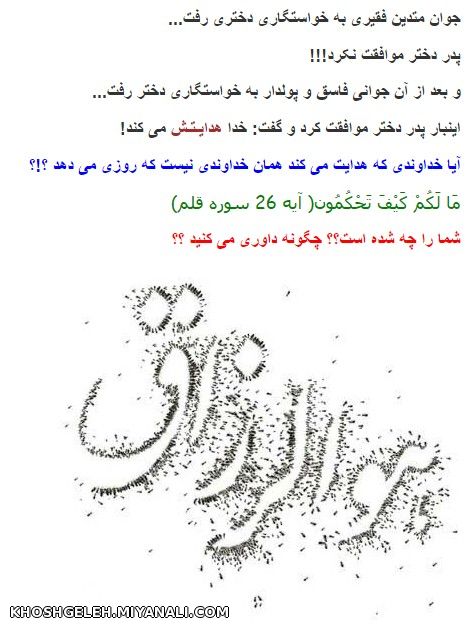 جوان متدین فقیری به خواستگاری دختری رفت...
پدر دختر موافقت نکرد!!!
و بعد از آن جوانی فاسق و پولدار به خواستگاری دختر رفت...
اینبار پدر دختر موافقت کرد و گفت: خدا هدایتش می کند!
آیا خداوندی که هدایت می کند همان خداوندی نیست که روزی می دهد ؟!؟
مَا لَكُمْ كَيْفَ تَحْكُمُون( آیه 26 سوره قلم)
شما را چه شده است؟؟ چگونه داوری می کنید ؟؟
هو الرزاق
KHOSHGELEH.MIYANALI.COM